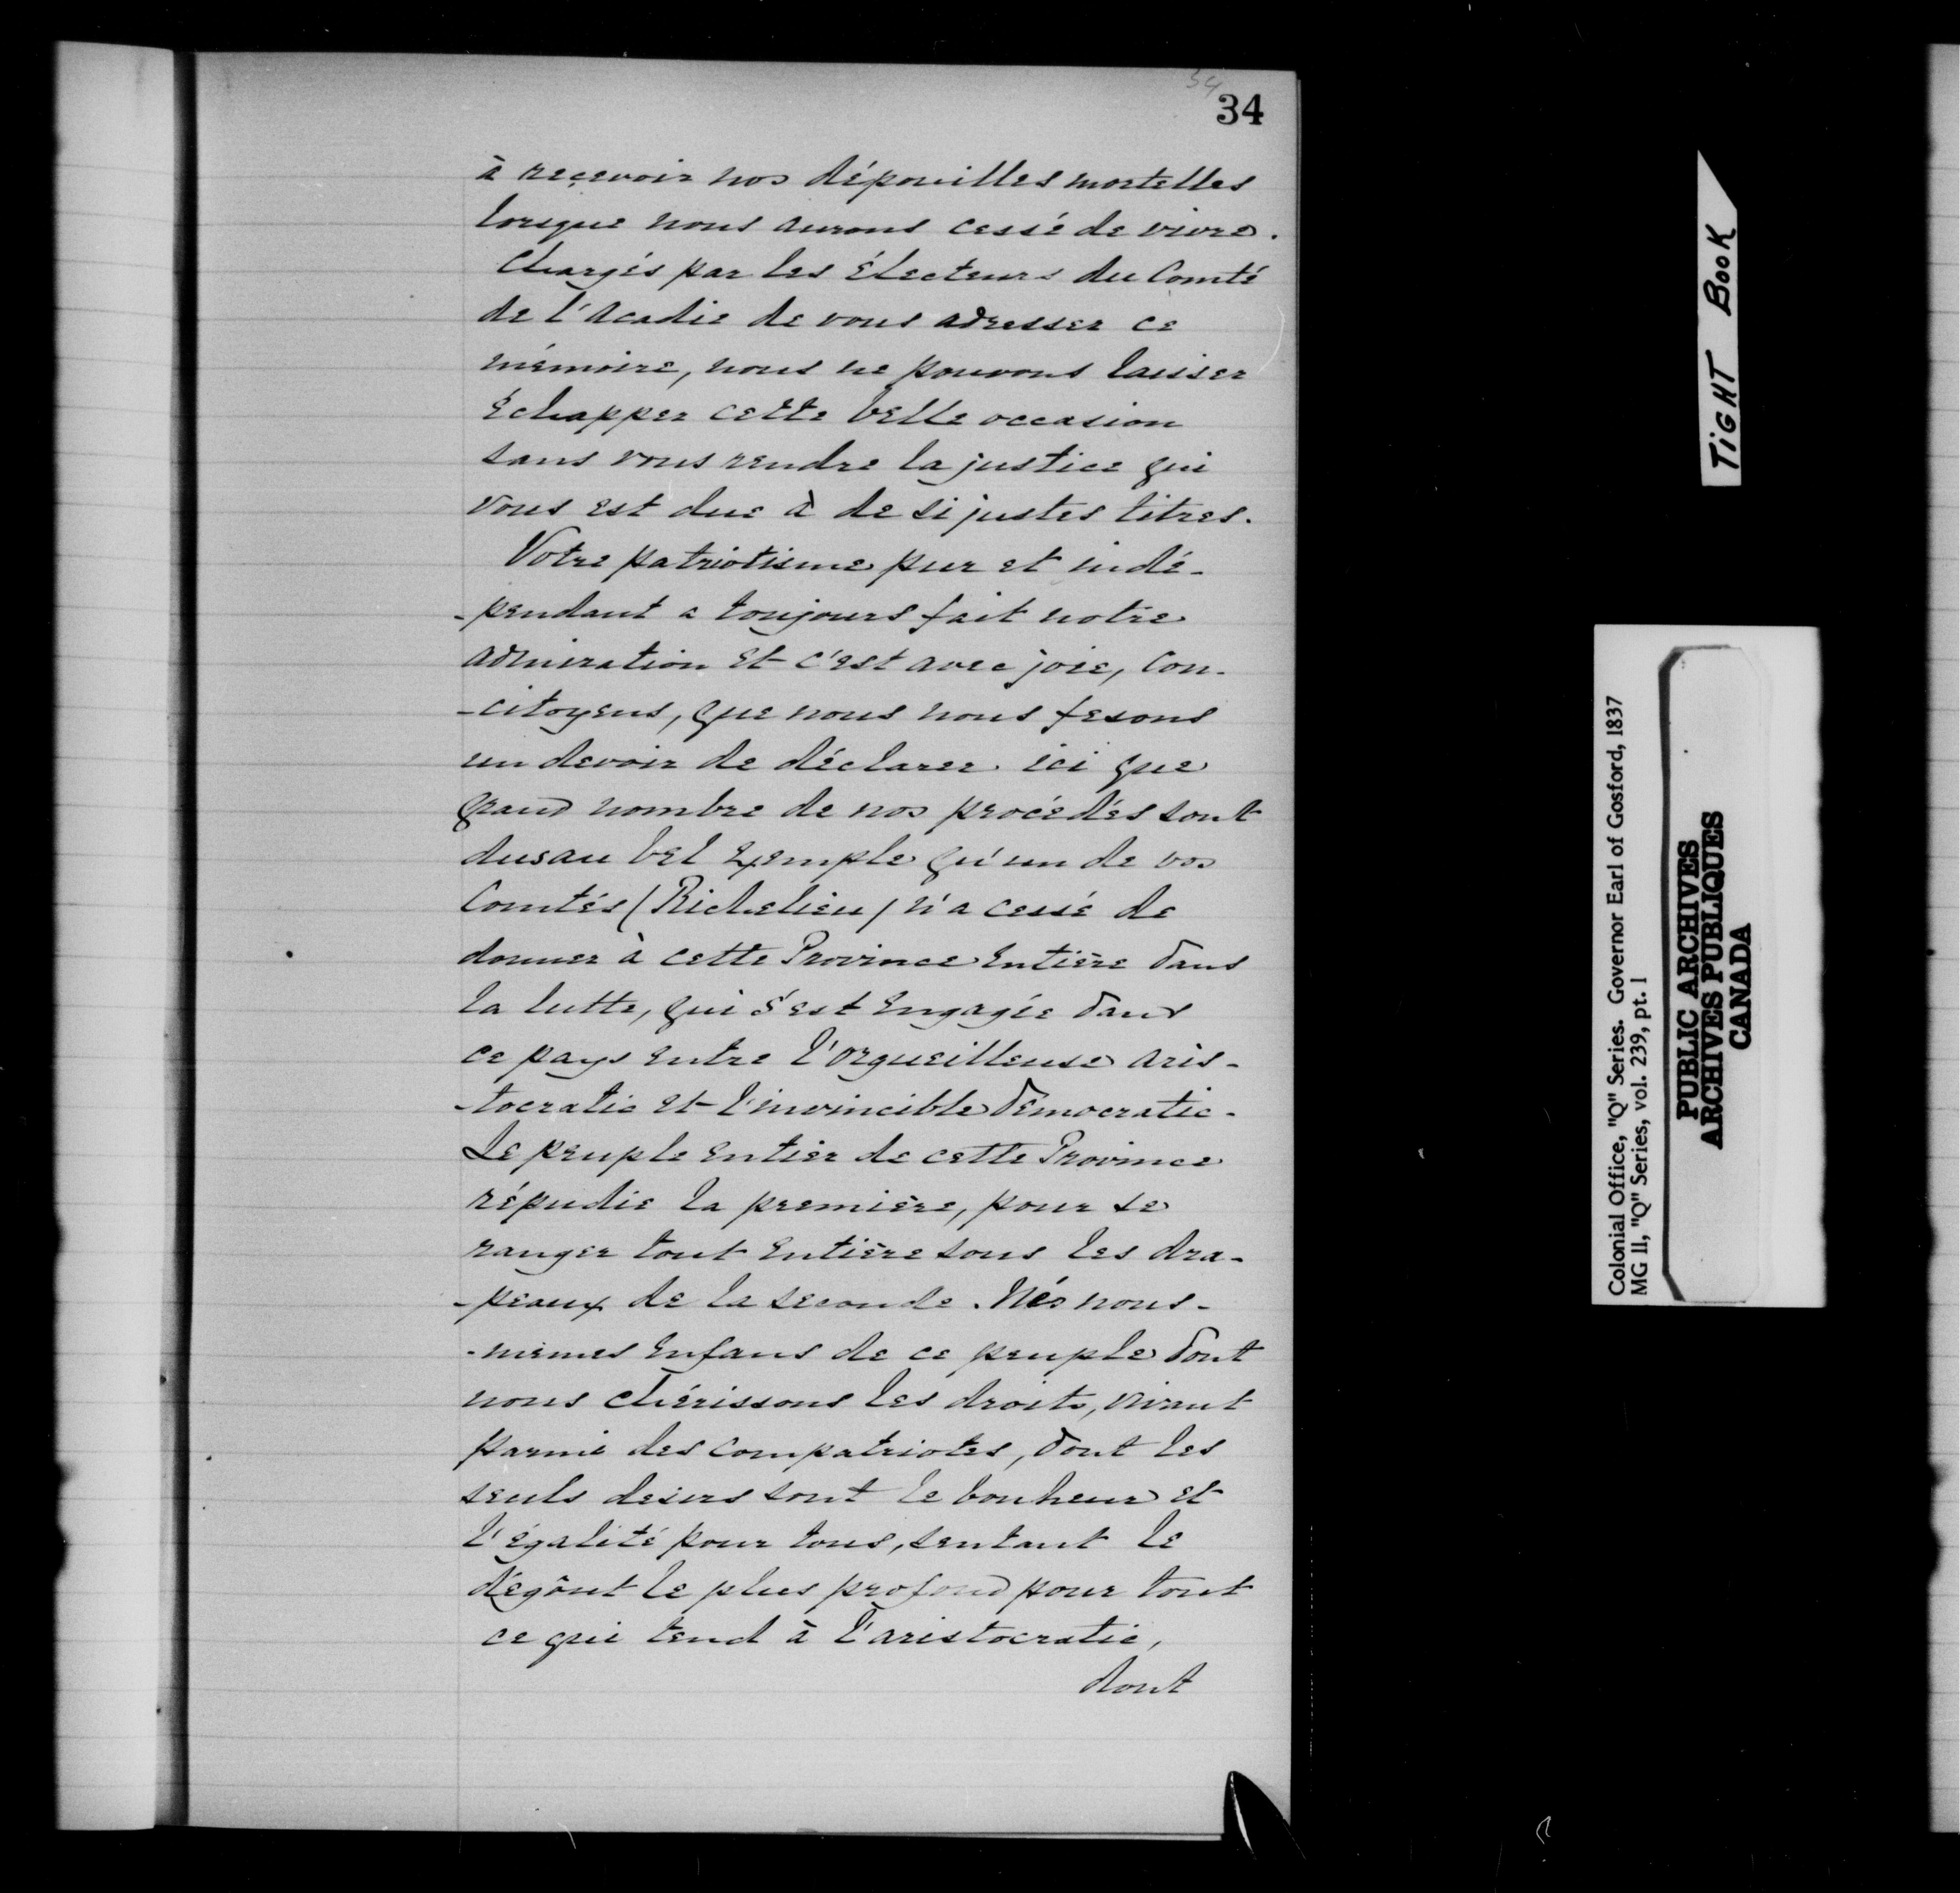 34
34
à reçevoir nos dépouilles mortelles
lorsque nous aurons cessé de vivre.
Chargés par les Électeurs du Comté
de l'Acadie de vous adresser ce
mémoire, nous ne pouvons laisser
échapper cette belle occasion
sans vous rendre la justice qui
vous est due à de si justes titres.
Votre patriotisme pur et indé-
-pendant a toujours fait notre
admiration et c'est avec joie, Con-
-citoyens, que nous nous fesons
un devoir de déclarer ici que
grand nombre de nos procédés sont
dus au bel exemple qu'un de vos
Comtés (Richelieu) n'a cessé de
donner à cette Province entière dans
la lutte, qui s'est engagée dans
ce pays entre l'orgueilleuse aris-
-tocratie et l'invincible Démocratie.
Le peuple entier de cette Province
répudie la première, pour se
ranger tout entière sous les dra-
-peaux de la seconde. Nés nous-
-mêmes enfans de ce peuple dont
nous chérissons les droits, vivant
parmi des compatriotes, dont les
seuls desirs sont le bonheur et
l'égalité pour tous, sentant le
dégôut le plus profond pour tout
ce qui tend à l'aristocratie,
dont
TIGHT BOOK
Colonial Office, "Q" Series. Governor Earl of Gosford, 1837
MG 11, "Q" Series, vol. 239, pt. 1
PUBLIC ARCHIVES
ARCHIVES PUBLIQUES
CANADA